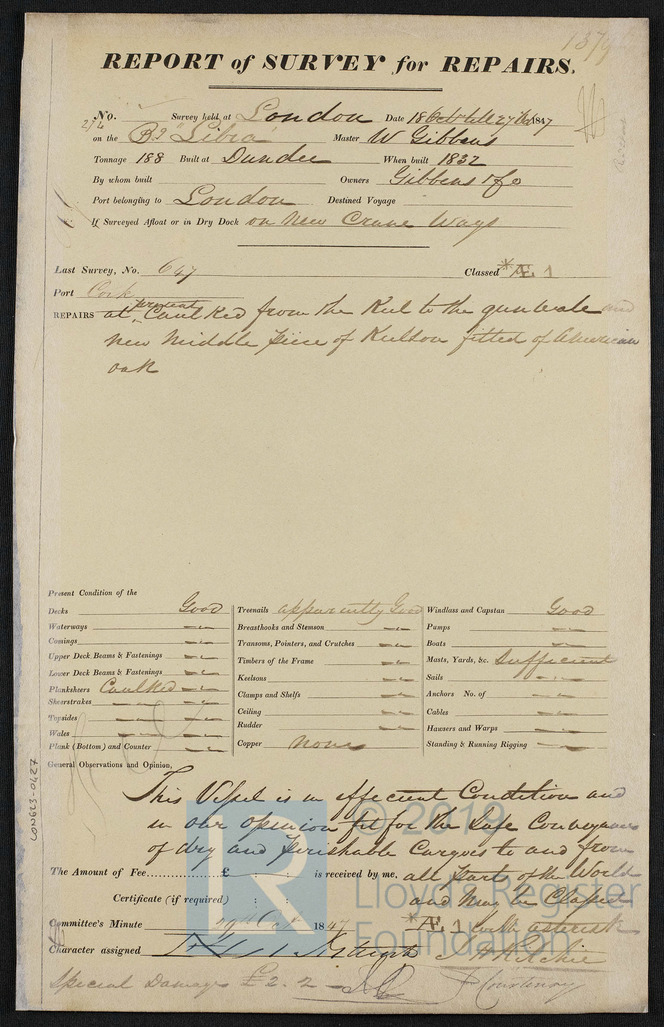 1379
REPORT of SURVEY for REPAIRS.
No. Survey held at London Date 18 Oct till 27 1847
276
on the Bg "Libra" Master W Gibbens
Tonnage 188 Built at Dundee When built 1832
By whom built Owners Gibbens & Co
Port belonging to London Destined Voyage
If Surveyed Afloat or in Dry Dock on New Crane Ways
Last Survey, No. 647 Classed *Æ 1
Port Cork
REPAIRS all Caulked from the Keel to the gunwale and
new Middle piece of Keelson fitted of American
oak
Present Condition of the
Decks Good
Waterways —
Comings —
Upper Deck Beams & Fastenings —
Lower Deck Beams & Fastenings —
Planksheers Caulked —
Sheerstrakes — —
Topsides — —
Wales — —
Plank (Bottom) and Counter —
Treenails apparently Good
Breasthooks and Stemson —
Transoms, Pointers, and Crutches —
Timbers of the Frame —
Keelsons —
Clamps and Shelfs —
Ceiling —
Rudder —
Copper none
Windlass and Capstan Good
Pumps —
Boats —
Masts, Yards, &c. Sufficient
Sails —
Anchors No. of —
Cables —
Hawsers and Warps —
Standing & Running Rigging —
General Observations and Opinion,
This Vessel is in effecient Condition and
in our opinion fit for the Safe Conveyance
of dry and perishable Cargoes to and from
The Amount of Fee £ : : is received by me, all parts of the World
Certificate (if required) : : and may be Classed
Committee's Minute Oct 1847 *Æ 1 with asterisk
Character assigned J Ritchie
Special Damage £2. 2 — Courtenay
LON623-0427
© 2019
Lloyd's Register
Foundation